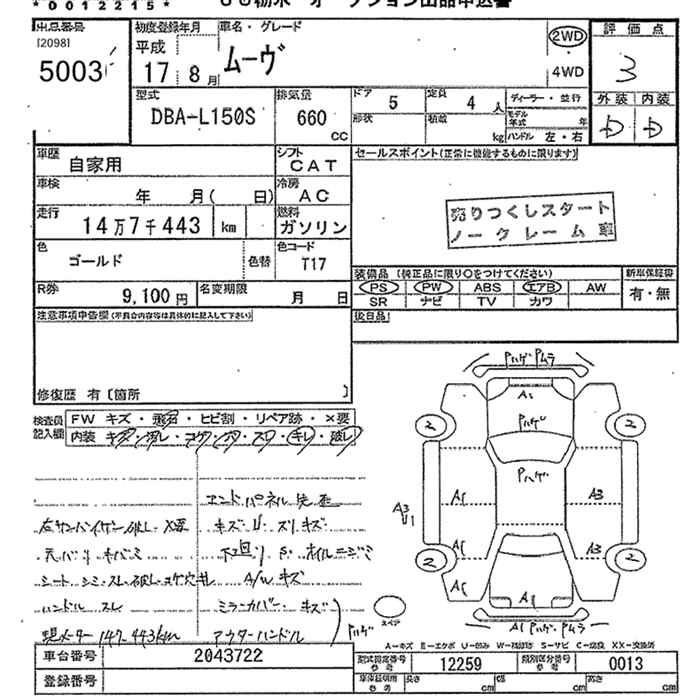 *0012215*
オークション出品申込書
出品番号
[2098]
5003
初度登録年月
平成
17 8月
車名・グレード
ムーヴ
2WD
4WD
評価点
3
外装 内装
D D
型式
DBA-L150S
排気量
660
CC
ドア
5
定員
4 人
形状
積載
kg
ディーラー・並行
モデル年式 年
ハンドル 左・右
車歴
自家用
シフト
CAT
車検
年 月( 日)
冷房
AC
走行
14万7千443 km
燃料
ガソリン
色
ゴールド
色替
色コード
T17
R券
9,100円
名変期限
月 日
セールスポイント(正常に機能するものに限ります)
売りつくしスタート
ノークレーム車
装備品 (純正品に限り○をつけてください)
新車保証書
PS PW ABS エアB AW
SR ナビ TV カワ
有・無
後日品
注意事項申告欄(不具合内容等は具体的に記入して下さい)
修復歴 有〔箇所 〕
検査員記入欄
FW キズ・飛石・ヒビ割・リペア跡・×要
内装 キズ・汚レ・コゲ・穴・スレ・キレ・破レ
エンドパネル
左サンバイザー破レ ×要
キズU スリキズ
天バリ キバミ
下回りS ホイルニジミ
シート シミ スレ 破レ コゲ穴
A/W キズ
ハンドル スレ
ミラーカバー キズ
現メーター 147,443km
アウターハンドル
ハゲ
Pハゲ Pムラ
A1
Pハゲ
Pハゲ
2 2
A1 A3
A3
U1
A1 A3
2 2
A1
A1
A1 Pハゲ Pムラ
スペア
A-キズ E-エクボ U-凹み W-補修跡 S-サビ C-腐食 XX-交換済
車台番号
2043722
登録番号
型式指定番号
参考
12259
類別区分番号
参考
0013
車庫証明用
参考
長さ cm
幅 cm
高さ cm